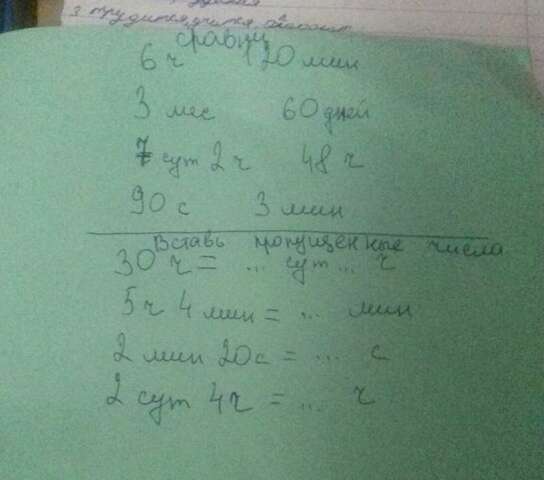 сравни
6 ч 120 мин
3 мес 60 дней
7 сут 2 ч 48 ч
90 с 3 мин
Вставь пропущенные числа
30 ч = ... сут ... ч
5 ч 4 мин = ... мин
2 мин 20 с = ... с
2 сут 4 ч = ... ч